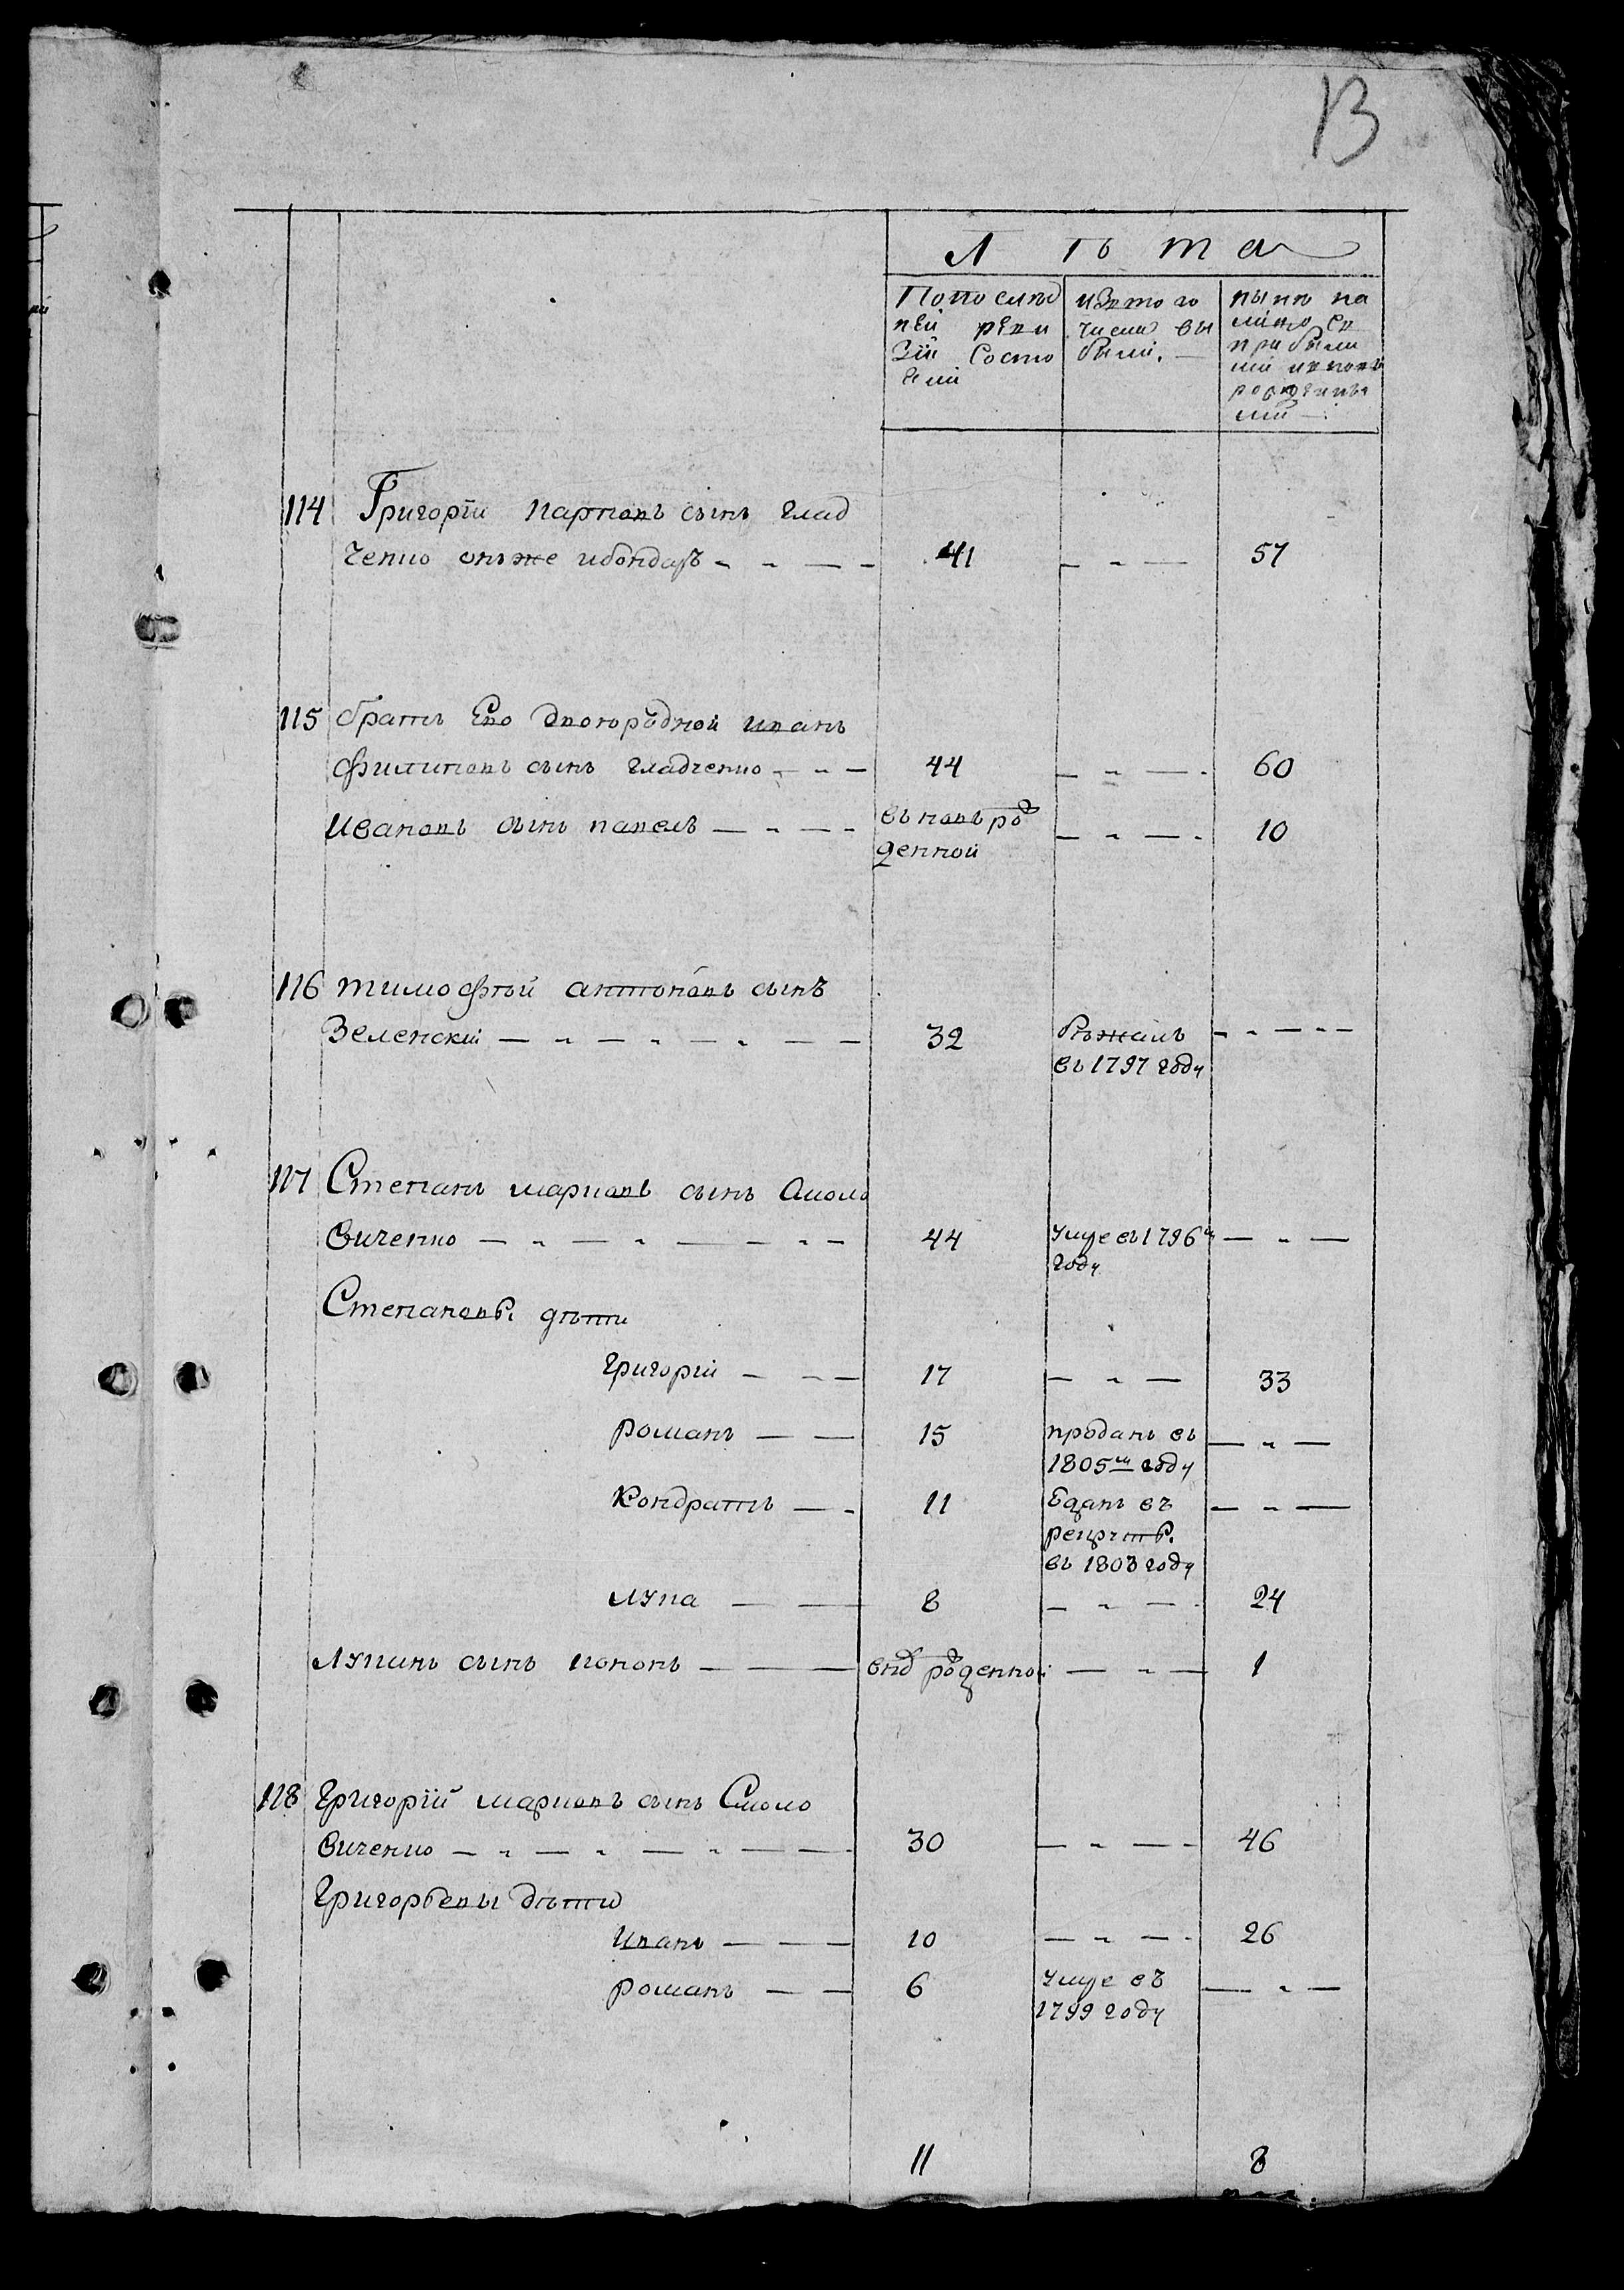 13
Лѣта
Попослѣд
ней реви
зіи состо
яли
изтого
числа вы
были.
нынѣ на
лицо съ
прибылы
ми и новъ
рожденны
ми
114 Григорїи карповъ сынъ глад
ченко онъже ибондаръ 41 57
115 братъ Его двоюродной иванъ
филиповъ сынъ гладченко 44 60
Ивановъ сынъ павелъ въновърож
денной 10
116 тимофѣй антоновъ сынъ
Зеленскїи 32 бѣжалъ
въ 1797 году
117 Степанъ марковъ сынъ Смоло
виченко 44 умре въ 1796м
году
Степановы дѣти
григорїи 17 33
романъ 15 проданъ въ
1805м году
Кондратъ 11 отданъ въ
рекруты
въ 1803 году
лупа 8 24
лупинъ сынъ кононъ внов рожденной 1
118 григорїй марковъ сынъ Смоло
виченко 30 46
григорьевы дѣти
Иванъ 10 26
романъ 6 умре въ
1799 году
11 8